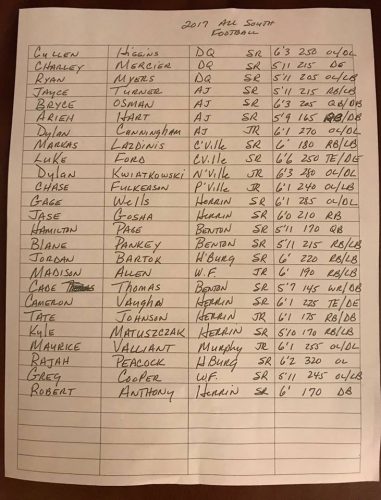 2017 ALL SOUTH
FOOTBALL
CULLEN HIGGINS DQ SR 6'3 250 OL/DL
CHARLEY MERCIER DQ SR 5'11 215 DE
RYAN MYERS DQ SR 5'11 205 OL/LB
JAYCE TURNER AJ SR 5'11 215 RB/LB
BRYCE OSMAN AJ SR 6'3 205 QB/DB
ARIEH HART AJ SR 5'9 165 /DB
Dylan CUNNINGHAM AJ JR 6'1 270 OL/DL
MARKAS LAZDINIS C'Ville SR 6' 180 RB/LB
LUKE FORD CVille SR 6'6 250 TE/DE
Dylan KWIATKOWSKI N'Ville JR 6'3 280 OL/DL
CHASE FULKERSON P'Ville JR 6'1 240 OL/LB
GAGE Wells HERRIN SR 6'1 285 OL/DL
JASE GOSHA HERRIN SR 6'0 210 RB
HAMILTON PAGE BENTON SR 5'11 170 QB
BLANE PANKEY BENTON SR 5'11 215 RB/LB
JORDAN BARTOK H'BURG SR 6' 220 RB/LB
MADISON ALLEN W.F. JR 6' 190 RB/LB
CADE THOMAS BENTON SR 5'7 145 WR/DB
CAMERON VAUGHN HERRIN SR 6'1 225 TE/DE
TATE JOHNSON HERRIN JR 6'1 175 RB/DB
Kyle MATUSZCZAK HERRIN SR 5'10 170 RB/LB
MAURICE VALLIANT Murphy JR 6'1 255 OL/DL
RAJAH PEACOCK H'BURG SR 6'2 320 OL
GREG COOPER W.F. SR 5'11 245 OL/LB
ROBERT ANTHONY HERRIN SR 6' 170 DB